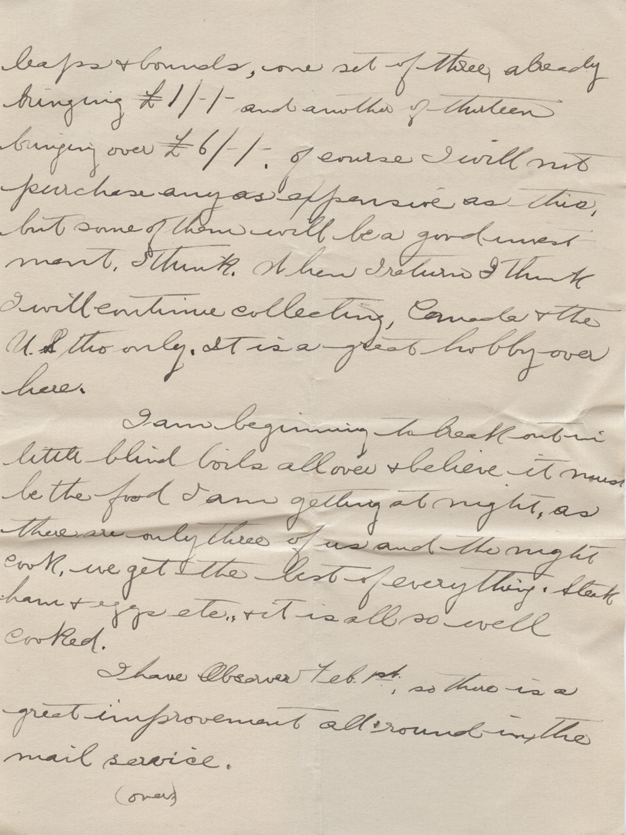 leaps & bounds, one set of three, already
bringing £1/-/- and another of thirteen
bringing over £6/-/-. Of course I will not
purchase any as expensive as this,
but some of them will be a good invest
ment, I think. When I return I think
I will continue collecting, Canada & the
U.S. tho only. It is a great hobby over
here.
I am beginning to break out in
little blind boils all over & believe it must
be the food I am getting at night, as
there are only three of us and the night
cook, we get the best of everything. Steak
ham & eggs etc., & it is all so well
cooked.
I have Observer Feb. 1st, so there is a
great improvement all round in the
mail service.
(over)